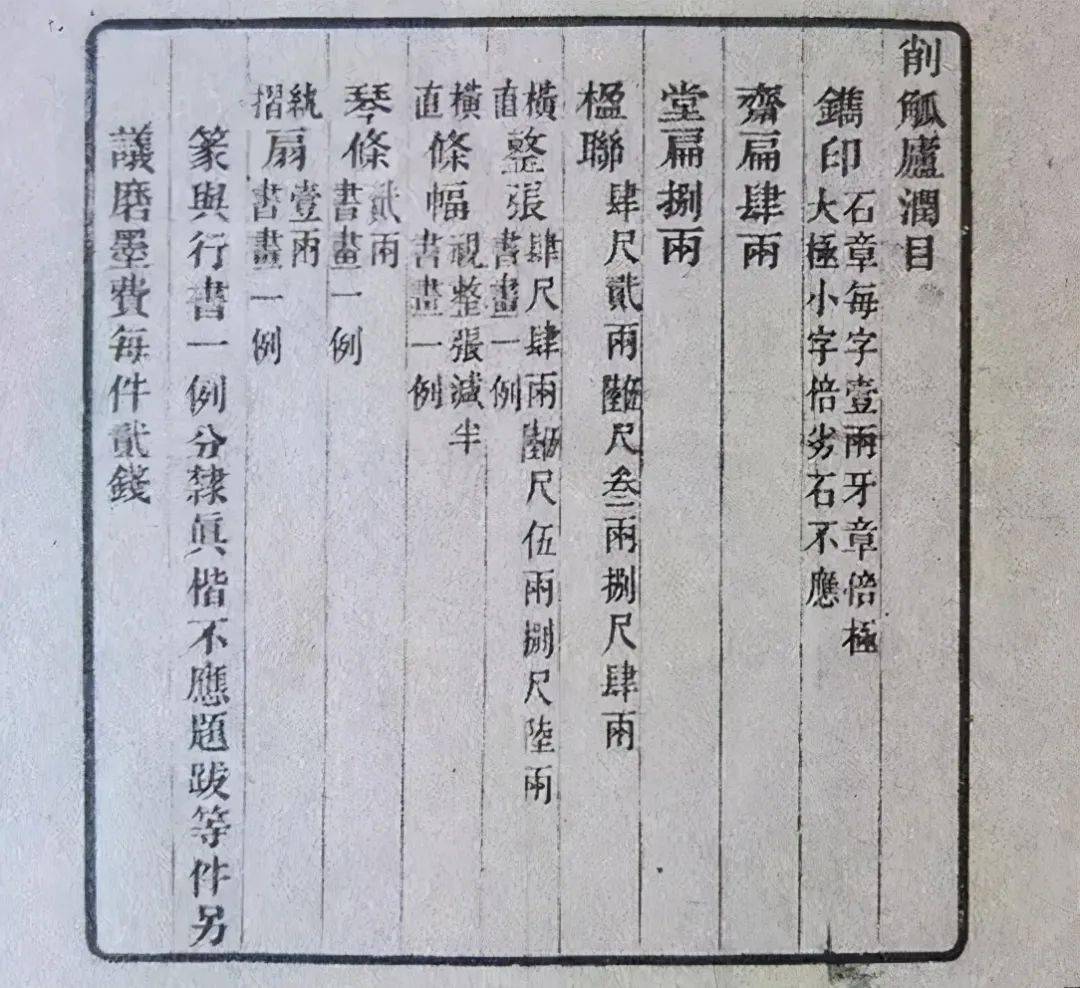 削觚廬潤目
鐫印石章每字壹兩牙章倍極
大極小字倍劣石不應
齋扁肆兩
堂扁捌兩
楹聯肆尺貳兩伍陸尺叁兩捌尺肆兩
橫直整張肆尺肆兩伍陸尺伍兩捌尺陸兩
書畫一例
橫直條幅視整張減半
書畫一例
琴條貳兩
書畫一例
紈摺扇壹兩
書畫一例
篆與行書一例分隸眞楷不應題跋等件另
議磨墨費每件貳錢